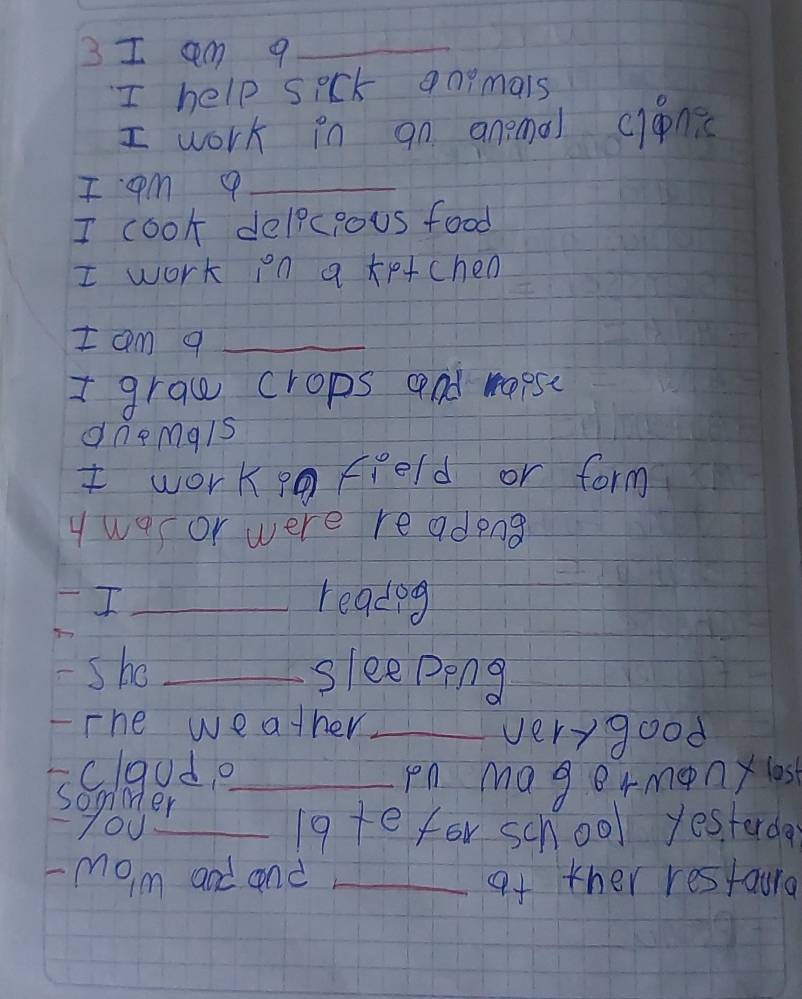 3 I am a
I help sick animals
I work in an animal clinic
I am a
I cook delicious food
I work in a kitchen
I am a
I graw crops and raise
animals
I work in field or form
4 was or were reading
- I readig
- She sleeping
- The weather very good
- Claudio in magermany last
sommer
- You late for school yesterday
- Moim and at ther restaura